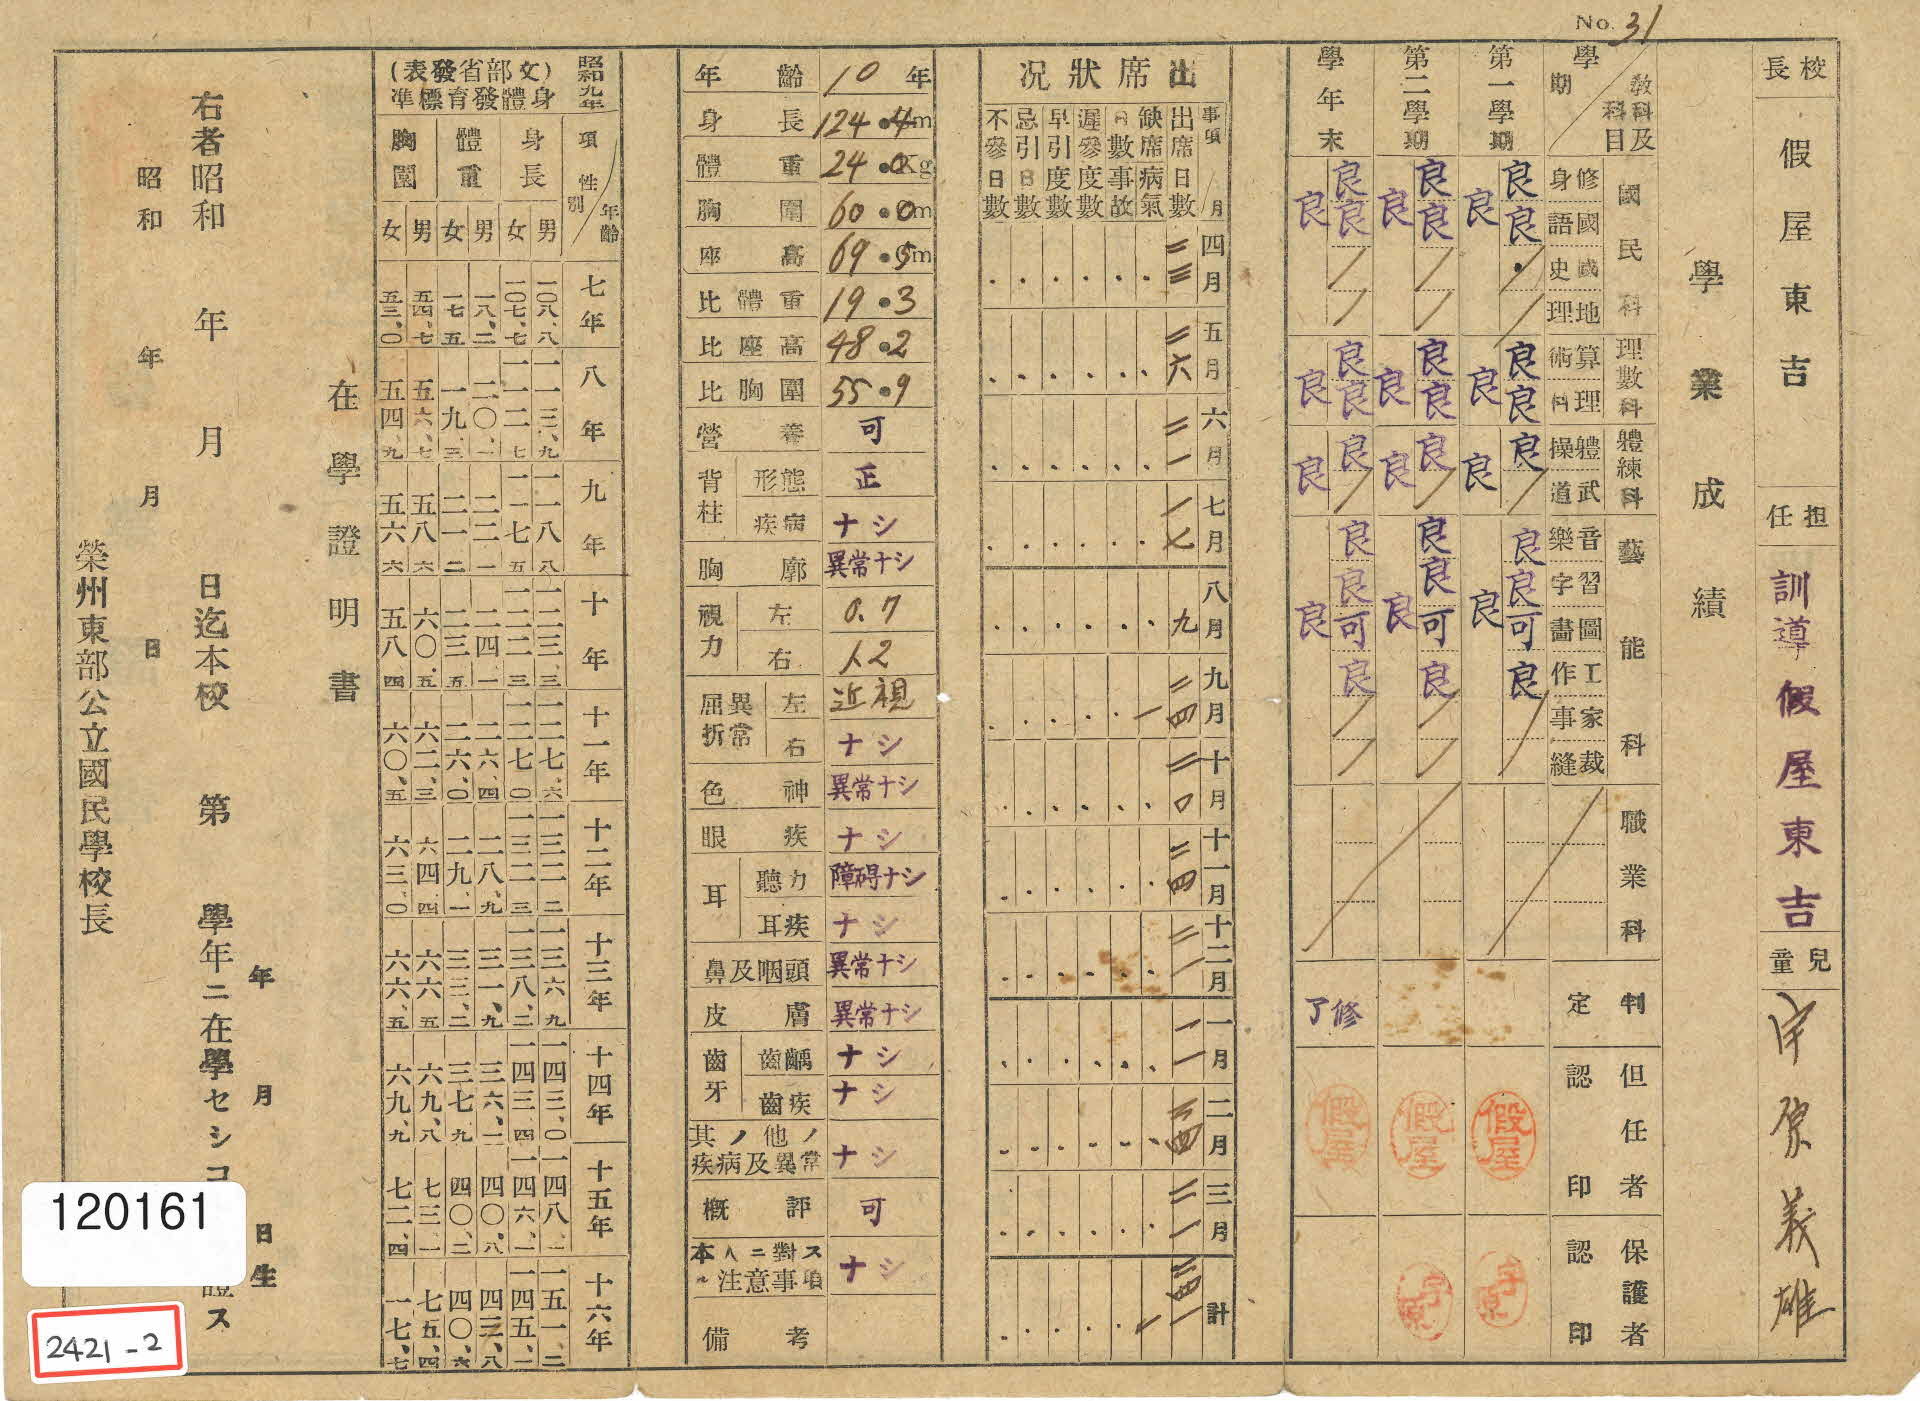 No. 31
校長
假屋東吉
担任
訓導 假屋東吉
兒童
宇原義雄
學業成績
教科及科目
學期
第一學期
第二學期
學年末
國民科
修身
國語
國史
地理
理數科
算術
理科
體練科
體操
武道
藝能科
音樂
習字
圖畫
工作
家事
裁縫
職業科
判定
但任者認印
保護者認印
良 良 良
良 良 良
良 良
良 良 可 良 良
良 良 良
良 良 良
良 良
良 良 可 良 良
良 良 良
良 良 良
良 良
良 良 可 良 良
修了
假屋
假屋
假屋
宇原
宇原
出席狀況
事項/月
出席日數
缺席日數 病氣
事故
遲參度數
早引度數
忌引日數
不參日數
四月 二三
五月 二六
六月 二一
七月 一七
八月 九
九月 二四 一
十月 二〇
十一月 二四
十二月 二一
一月 一一
二月 二四
三月 二一
計 二四一 一
年齡 10年
身長 124.4m
體重 24.0Kg
胸圍 60.0m
座高 69.5m
比體重 19.3
比座高 48.2
比胸圍 55.9
營養 可
背柱 形態 正
疾病 ナシ
胸廓 異常ナシ
視力 左 0.7
右 1.2
屈折異常 左 近視
右 ナシ
色神 異常ナシ
眼疾 ナシ
耳 聽力 障碍ナシ
耳疾 ナシ
鼻及咽頭 異常ナシ
皮膚 異常ナシ
齒牙 齒齲 ナシ
齒疾 ナシ
其ノ他ノ疾病及異常 ナシ
概評 可
本人ニ對スル注意事項 ナシ
備考
昭和九年
(文部省發表)
身體發育標準
項 性別 年齡
身長 男 女
體重 男 女
胸圍 男 女
七年 一〇八、八 一〇七、七 一八、二 一七、五 五四、七 五三、〇
八年 一一三、九 一一二、七 二〇、一 一九、三 五六、七 五四、九
九年 一一八、八 一一七、五 二二、一 二一、二 五八、六 五六、六
十年 一二三、三 一二二、三 二四、一 二三、五 六〇、五 五八、四
十一年 一二七、六 一二七、〇 二六、四 二六、〇 六二、三 六〇、五
十二年 一三二、二 一三二、三 二八、九 二九、一 六四、四 六三、〇
十三年 一三六、九 一三八、二 三一、九 三三、二 六六、五 六六、五
十四年 一四三、〇 一四三、四 三六、一 三七、九 六九、八 六九、九
十五年 一四八、一 一四六、一 四〇、八 四〇、二 七三、一 七二、四
十六年 一五一、二 一四五、一 四三、八 四〇、六 七五、四 一七、七
在學證明書
年 月 日生
右者昭和 年 月 日迄本校 第 學年ニ在學セシコ 證ス
昭和 年 月 日
榮州東部公立國民學校長
120161
2421-2